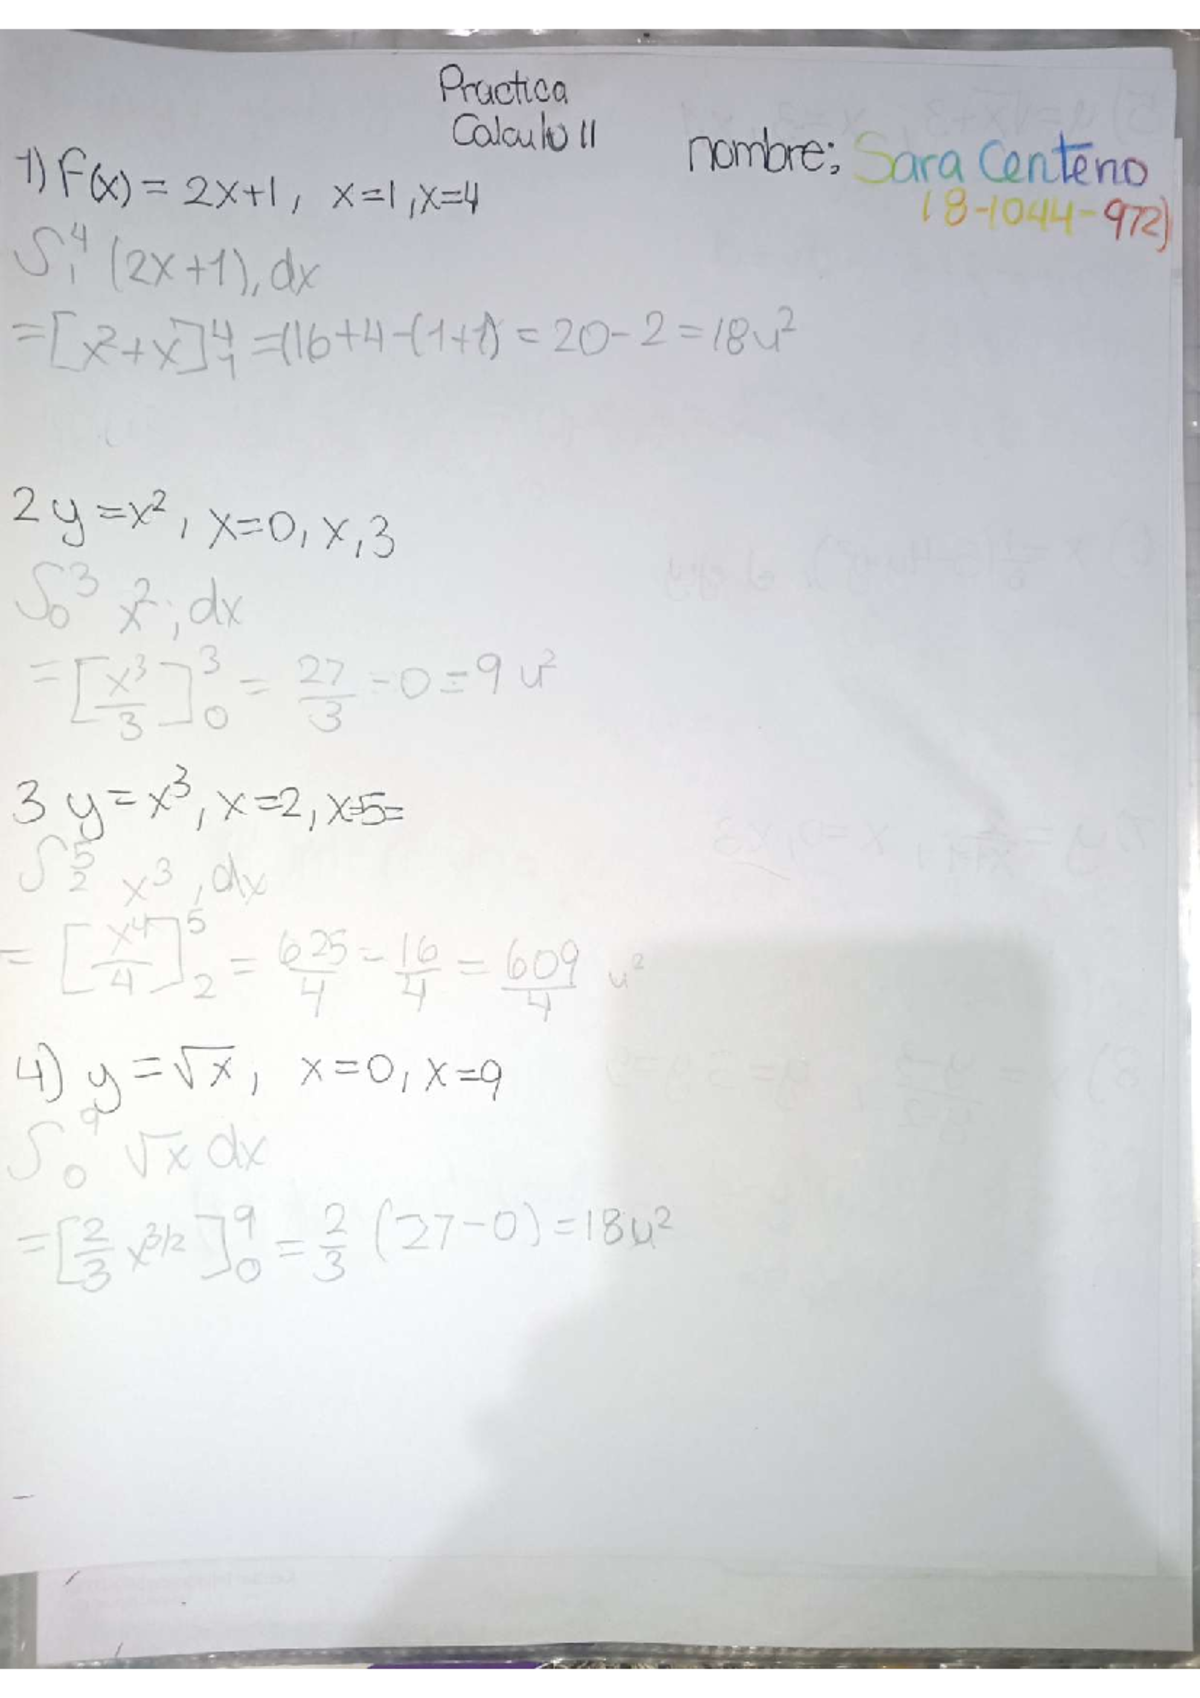 Practica
Calculo II
nombre; Sara Centeno
(8-1044-972)
1) F(x) = 2x+1, x=1, x=4
∫₁⁴ (2x+1), dx
= [x²+x]₁⁴ = (16+4-(1+1) = 20-2 = 18u²
2 y=x², x=0, x,3
∫₀³ x²; dx
= [x³/3]₀³ = 27/3 - 0 = 9 u²
3 y=x³, x=2, x=5=
∫₂⁵ x³, dx
= [x⁴/4]₂⁵ = 625/4 - 16/4 = 609/4 u²
4) y=√x, x=0, x=9
∫₀⁹ √x dx
= [2/3 x^3/2]₀⁹ = 2/3 (27-0) = 18u²